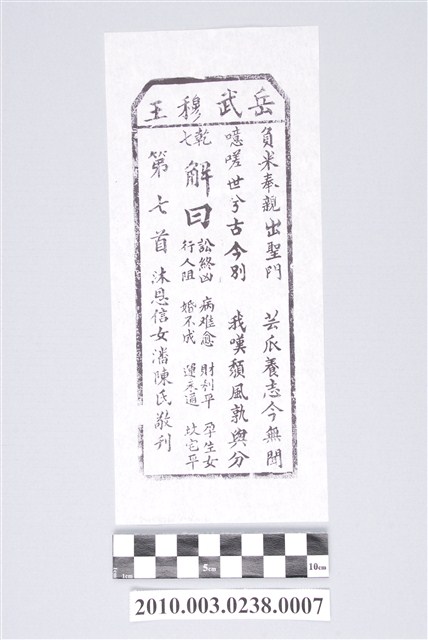 岳武穆王
負米奉親出聖門 芸瓜養志今無聞
噫嗟世兮古今別 我嘆頹風孰與分
乾七
解曰
訟終凶 病难愈 財利平 孕生女
行人阻 婚不成 運未通 坟宅平
第七首 沐恩信女潘陳氏敬刋
1cm 5cm 10cm
2010.003.0238.0007